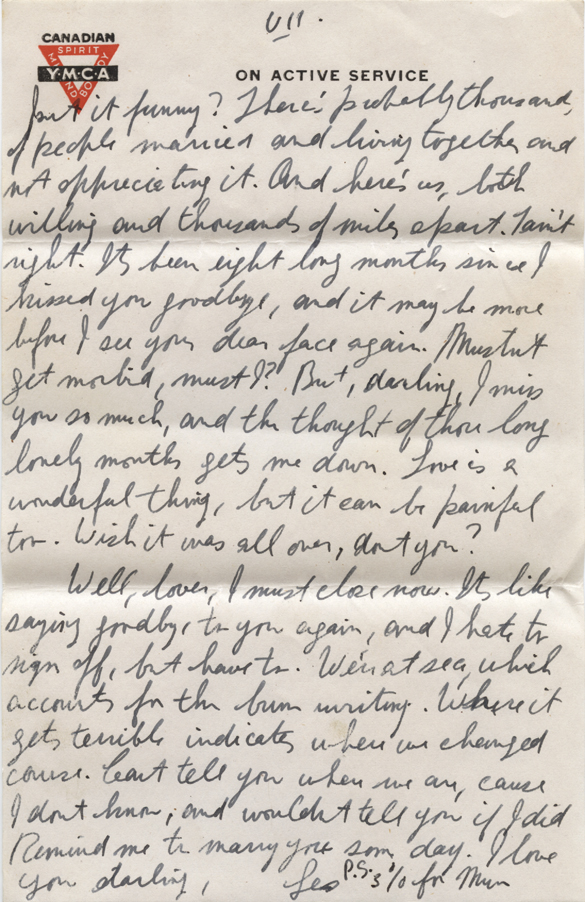 VII.
CANADIAN
SPIRIT
MIND BODY
Y·M·C·A
ON ACTIVE SERVICE
isn't it funny? There's probably thousands
of people married and living together and
not appreciating it. And here's us, both
willing and thousands of miles apart. 'Tain't
right. Its been eight long months since I
kissed you goodbye, and it may be more
before I see your dear face again. Mustnt
get morbid, must I? But, darling, I miss
you so much, and the thought of those long
lonely months gets me down. Love is a
wonderful thing, but it can be painful
too. Wish it was all over, dont you?
Well, lover, I must close now. Its like
saying goodbye to you again, and I hate to
sign off, but have to. We're at sea, which
accounts for the bum writing. Where it
gets terrible indicates where we changed
course. Cant tell you where we are, cause
I dont know, and wouldn't tell you if I did
Remind me to marry you some day. I love
you darling, Les P.S. 3 % for Mum